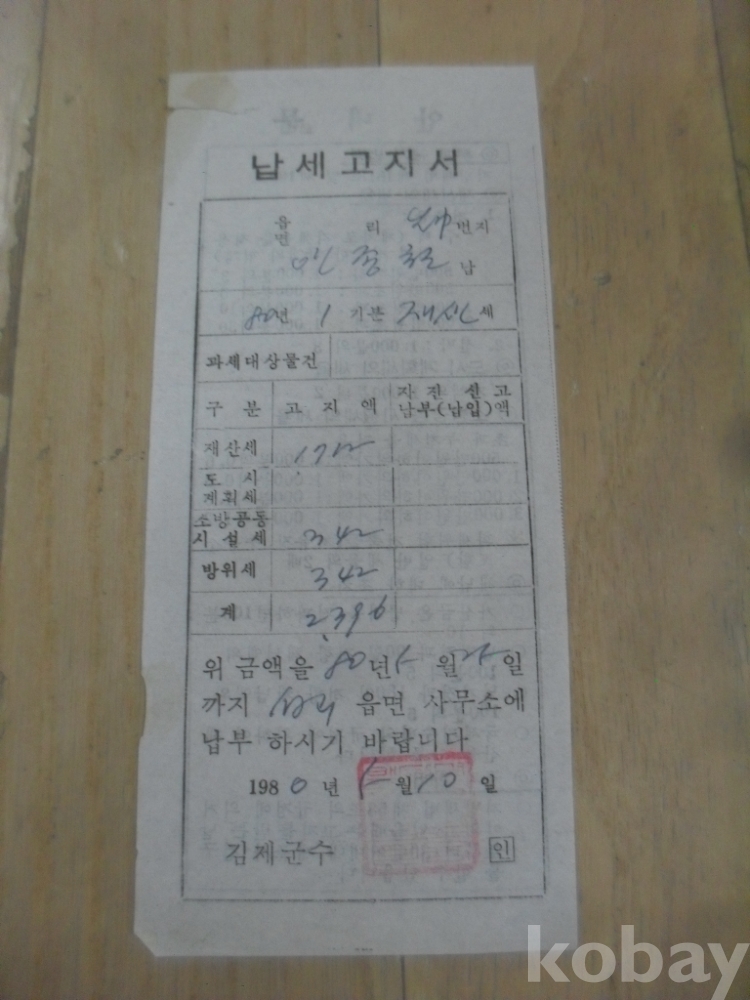 납세고지서
읍
면 리 번지
민종철 납
80년 1 기분 재산세
과세대상물건
구분 고지액 자진신고
납부(납입)액
재산세 1,712
도시
계획세
소방공동
시설세 342
방위세 342
계 2,396
위 금액을 80년 5월 25일
까지 읍면 사무소에
납부 하시기 바랍니다
1980년 5월 10일
김제군수 인
kobay